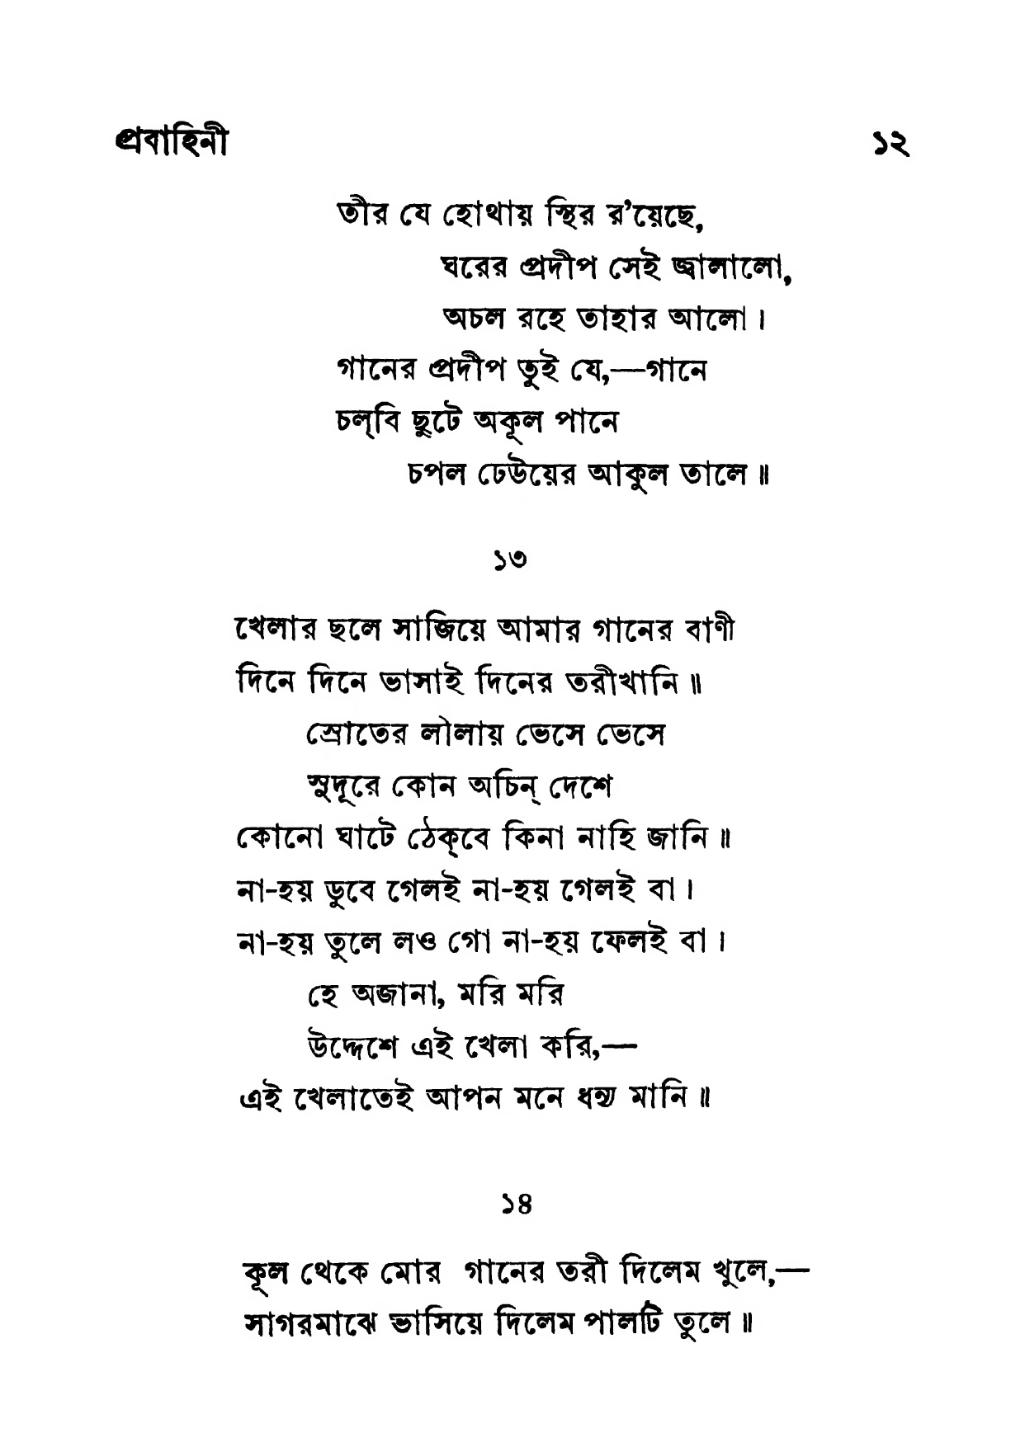 প্রবাহিনী ১২
তীর যে হোথায় স্থির র'য়েছে,
ঘরের প্রদীপ সেই জ্বালালো,
অচল রহে তাহার আলো।
গানের প্রদীপ তুই যে,—গানে
চল্‌বি ছুটে অকূল পানে
চপল ঢেউয়ের আকুল তালে॥
১৩
খেলার ছলে সাজিয়ে আমার গানের বাণী
দিনে দিনে ভাসাই দিনের তরীখানি॥
স্রোতের লীলায় ভেসে ভেসে
সুদূরে কোন অচিন্ দেশে
কোনো ঘাটে ঠেক্‌বে কিনা নাহি জানি॥
না-হয় ডুবে গেলই না-হয় গেলই বা।
না-হয় তুলে লও গো না-হয় ফেলই বা।
হে অজানা, মরি মরি
উদ্দেশে এই খেলা করি,—
এই খেলাতেই আপন মনে ধন্য মানি॥
১৪
কূল থেকে মোর গানের তরী দিলেম খুলে,—
সাগরমাঝে ভাসিয়ে দিলেম পালটি তুলে॥